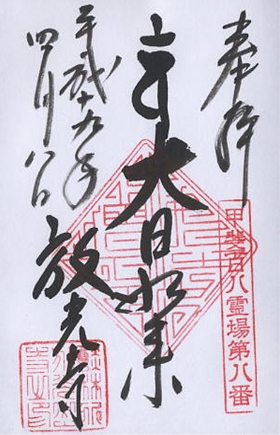 奉拝
甲斐百八霊場第八番
大日如来
放光寺
平成十九年
四月八日